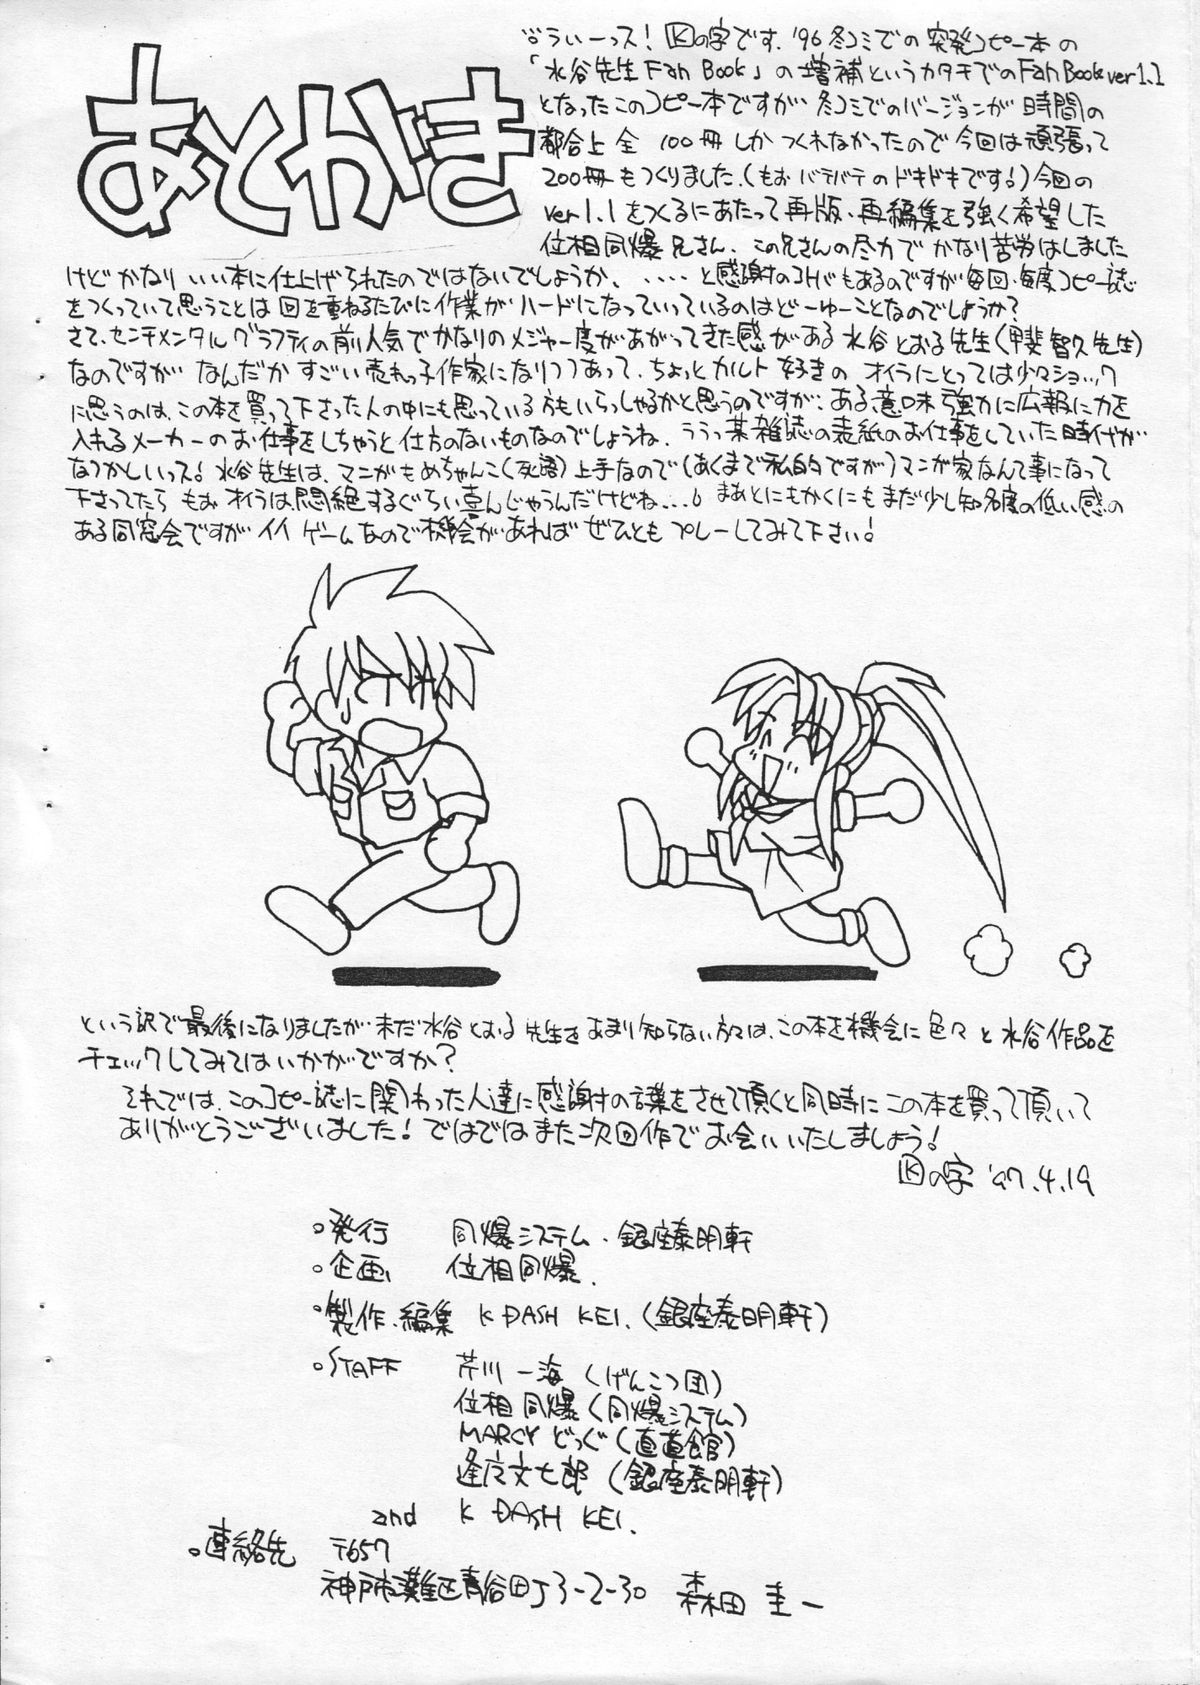 あとがき
うぃーっス！Kの字です。'96冬コミでの突発コピー本の
「水谷先生Fan Book」の増補というカタチでのFan Book ver1.1
となったこのコピー本ですが冬コミでのバージョンが時間の
都合上全100冊しかつくれなかったので今回は頑張って
200冊もつくりました。(もおバテバテのドキドキです！)今回の
ver1.1をつくるにあたって再版・再編集を強く希望した
位相同爆兄さん、この兄さんの尽力でかなり苦労はしました
けどかなりいい本に仕上げられたのではないでしょうか、・・・・と感謝のコトバもあるのですが毎回・毎度コピー誌
をつくっていて思うことは回を重ねるたびに作業がハードになっていっているのはどーゆーことなのでしょうか？
さて、センチメンタルグラフティの前人気でかなりのメジャー度があがってきた感がある水谷とおる先生(甲斐智久先生)
なのですがなんだかすごい売れっ子作家になりつつあって、ちょっとカルト好きのオイラにとっては少々ショック
に思うのは、この本を買って下さった人の中にも思っている方もいらっしゃるかと思うのですが、ある意味強力に広報に力を
入れるメーカーのお仕事をしちゃうと仕方のないものなのでしょうね、ううっ某雑誌の表紙のお仕事をしていた時代が
なつかしいっス！水谷先生は、マンガもめちゃんこ(死語)上手なので(あくまで私的ですが)マンガ家なんて事になって
下さってたらもおオイラは悶絶するぐらい喜んじゃうんだけどね・・・。まあとにもかくにもまだ少し知名度の低い感の
ある同窓会ですがイイゲームなので機会があればぜひともプレーしてみて下さい！
という訳で最後になりましたが未だ水谷とおる先生をあまり知らない方々は、この本を機会に色々と水谷作品を
チェックしてみてはいかがですか？
それでは、このコピー誌に関わった人達に感謝の言葉をさせて頂くと同時にこの本を買って頂いて
ありがとうございました！ではではまた次回作でお会いいたしましょう！
Kの字 '97.4.19
○発行 同爆システム・銀座泰明軒
○企画 位相同爆
○製作・編集 K DASH KEI.(銀座泰明軒)
○STAFF 芹川一海(げんこつ団)
位相同爆(同爆システム)
MARCYどっぐ(直道館)
逢広文七郎(銀座泰明軒)
and K DASH KEI.
○連絡先 〒657
神戸市灘区青谷町3-2-30 森田圭一